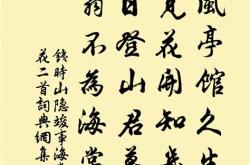 風亭館久生
見花開知歲
日登山君莫
翁不為海棠
錢時山隱竣事海
花二首詞典網集